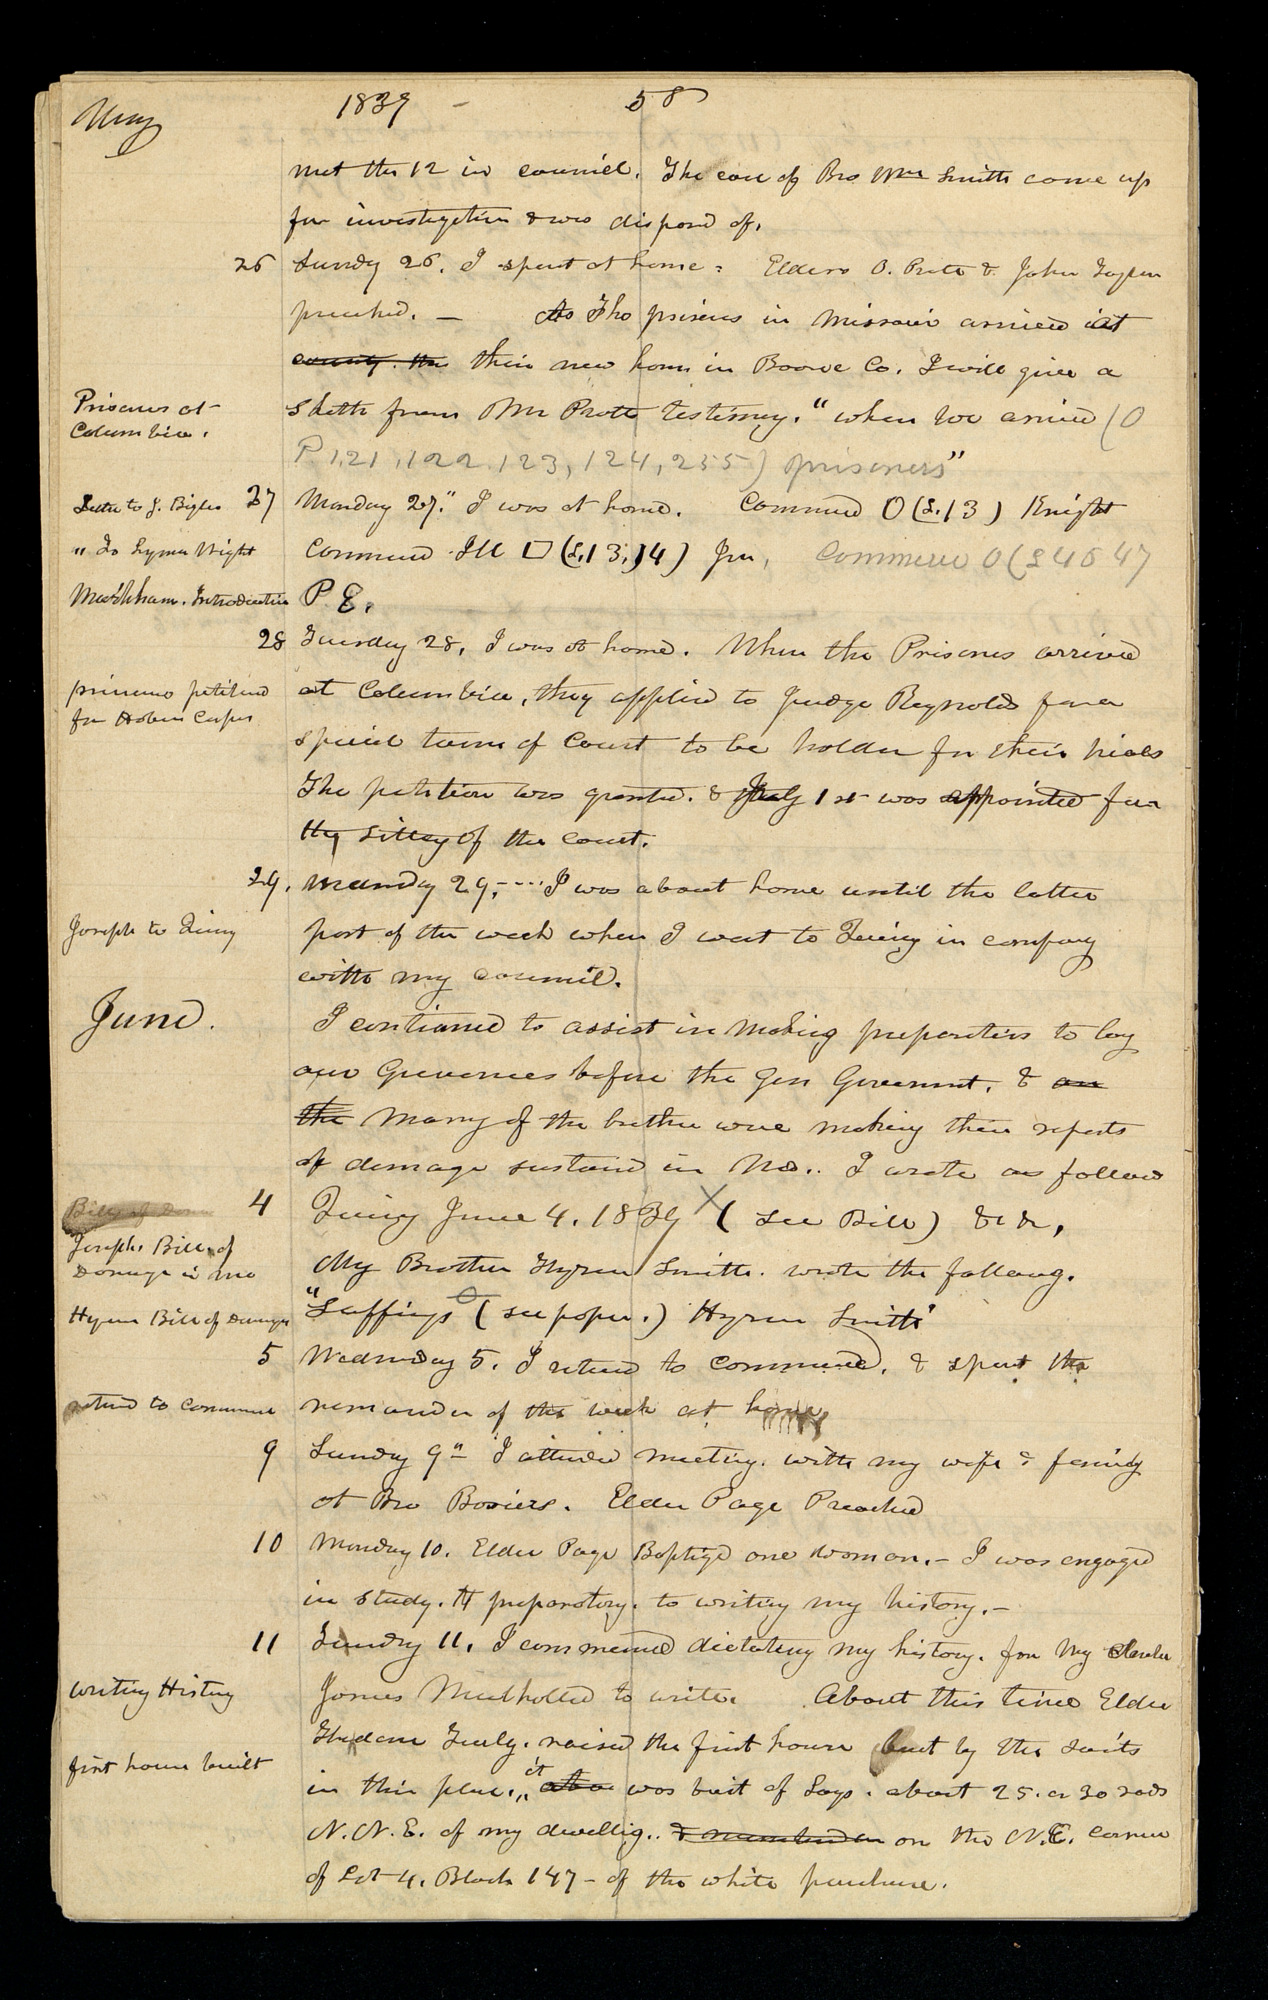 May 1839 - 58
met the 12 in council. The case of Bro Wm Smith come up
for investigation & was disposd of.
26 Sunday 26. I spent at home - Elders O. Pratt & John Taylor
preached. — As The prisnes in Missouri arrived at
county. the their new home in Boone Co. I will give a
Prisoners at
Columbia.
sketh from Mr Pratts testimony. "when we arrived (O
P 121, 122. 123, 124, 255) prisoners"
Letter to J. Bigler 27 Monday 27." I was at home. Commerce O (L.13) Knight
" To Lyman Wight Commerce Ill □ (L.13.14) Jun, Commerce O (L 46 47
Markham. Introduction P. E.
28 Tuesday 28, I was at home. When the Prisones arrived
prisoners petitiond
for Habeus Corpus
at Columbia, they applied to Judge Reynolds for a
speciel term of Court to be holden for their trials
The petition was granted. & July 1st was appointed for
the sitting of the court.
29. Wednsday 29, --- I was about home until the latter
Joseph to Quincy part of the week when I went to Quincy in company
with my council.
June. I continued to assist in making preparations to lay
our Grevences before the Gen Goverment. & an
the Many of the brethren were making their reports
of damage sustaind in Mo.. I wrote as follows
Bill of Dam 4 Quincy June 4. 1839 X (See Bill) &c &c,
Josephs Bill of
Damage in Mo
My Brother Hyrum Smith. wrote the followng.
Hyrum Bill of Damage "Suffings (see paper.) Hyrum Smith"
5 Wednsday 5. I returnd to commerce, & spent the
returnd to Commerce remainder of the week at home
9 Sunday 9th I attended meeting. with my wife & family
at Bro Bosiers. Elder Page Preached
10 Monday 10. Elder Page Baptizd one woman. - I was engaged
in study. preparatory. to writing my history. -
11 11. I commenced dictating my history. for my Clerk
Writing History James Mulholland to write. About this time Elder
Theodore Turly. raised the first house built by the Saits
first house built
in this place., it was built of Logs. about 25. or 30 rods
N. N. E. of my dwelling.. on the N.E. corner
of Lot 4. Block 147 - of the white purchase.